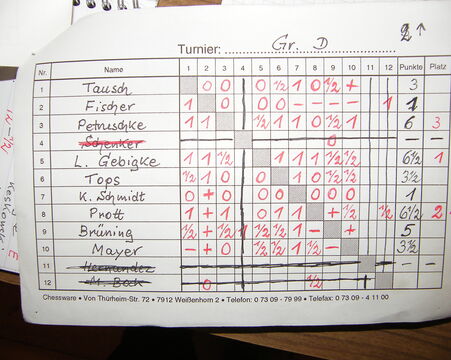 2↑
Turnier: Gr. D
Nr. Name 1 2 3 4 5 6 7 8 9 10 11 12 Punkte Platz
1 Tausch 0 0 0 ½ 1 0 ½ + 3
2 Fischer 1 0 0 0 – – – – 1 1
3 Petruschke 1 1 ½ 1 1 0 ½ 1 6 3
4 Schenker 0 – –
5 L. Gebigke 1 1 ½ 1 1 0 ½ ½ 6½ 1
6 Tops ½ 1 0 0 1 0 ½ ½ 3½
7 K. Schmidt 0 + 0 0 0 0 0 0 1
8 Pnott 1 + 1 0 1 1 + ½ ½ 6½ 2
9 Brüning ½ + ½ 1 ½ ½ 1 – + 5
10 Mayer – + 0 ½ ½ 1 ½ – 3½
11 Hernandez – –
12 M. Bock 0 ½
Chessware • Von Thürheim-Str. 72 • 7912 Weißenhorn 2 • Telefon: 0 73 09 - 79 99 • Telefax: 0 73 09 - 4 11 00